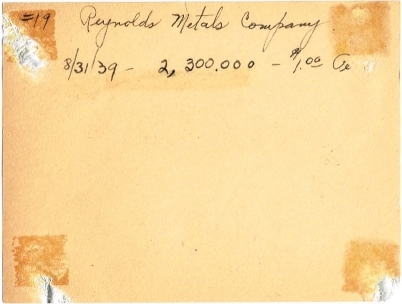 =19 Reynolds Metals Company
8/31/39 - 2,300.000 - $1.00 Pr